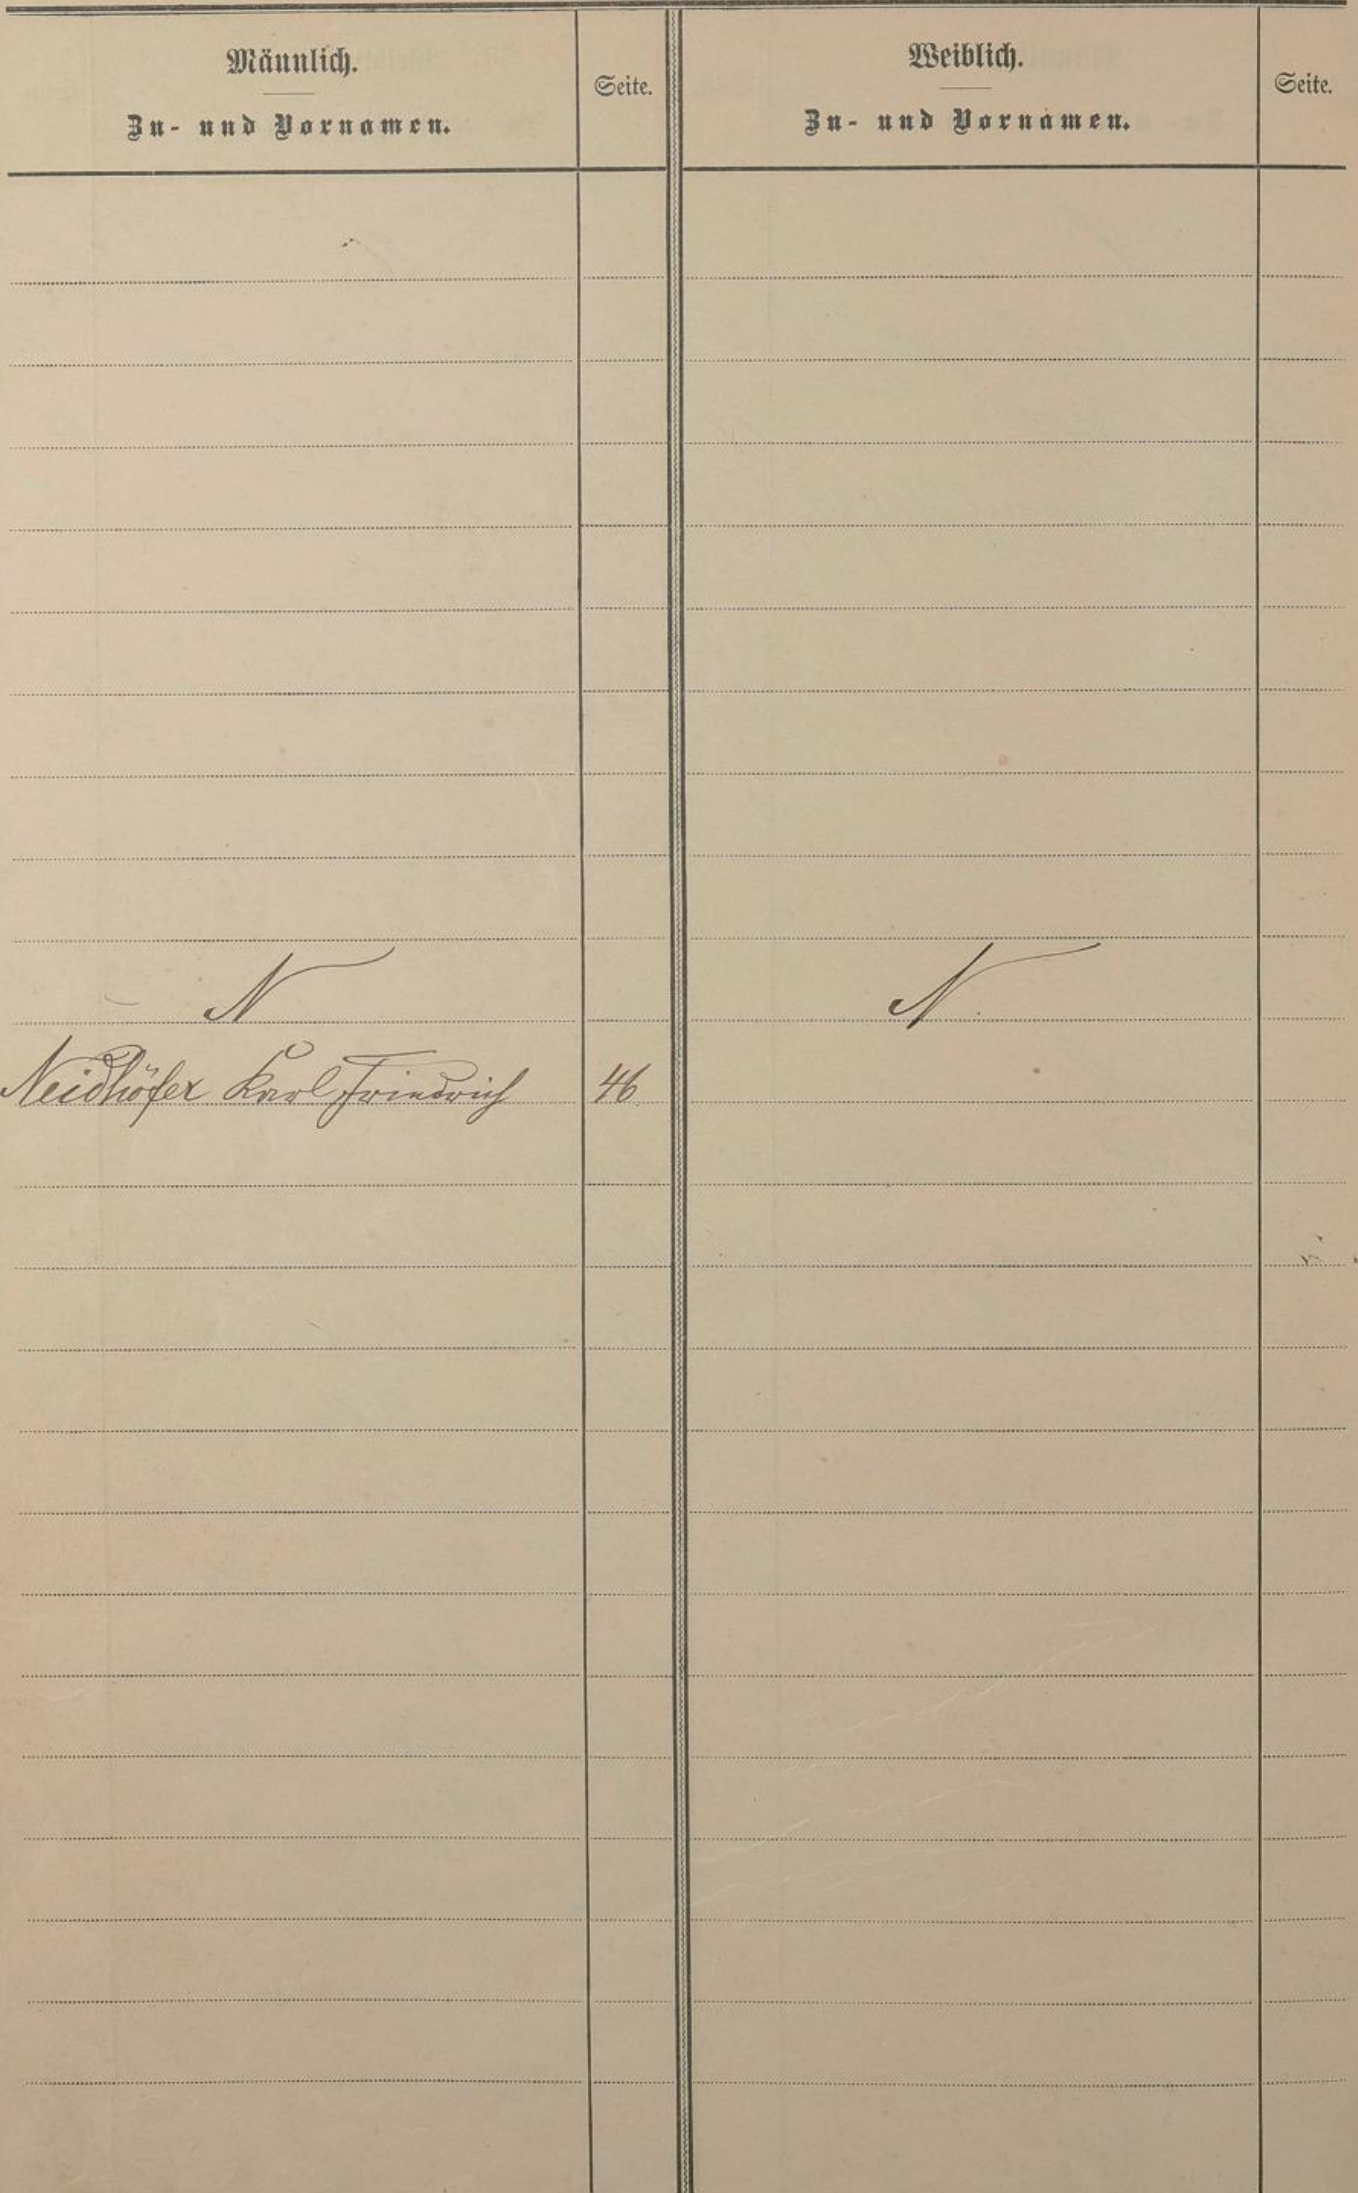 Männlich.
Zu- und Vornamen.
Seite.
Weiblich.
Zu- und Vornamen.
Seite.
N
N
Neidhöfer Karl Friedrich 46